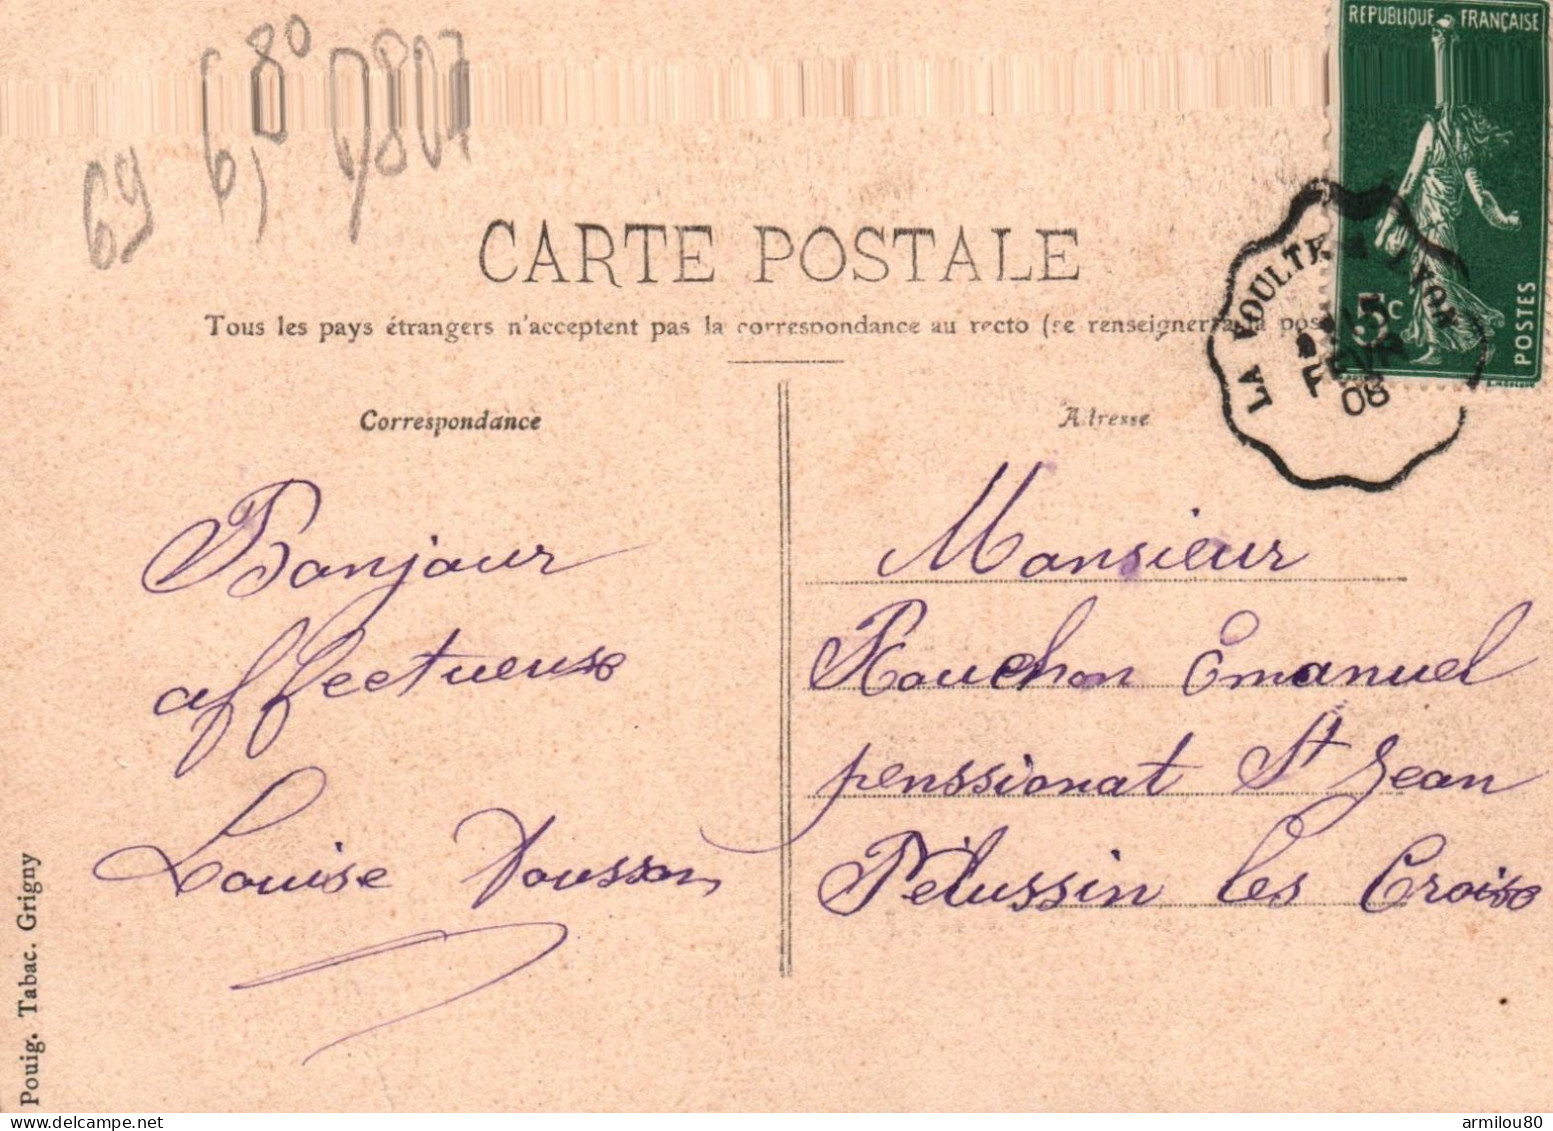 69 6,80 D807
REPUBLIQUE FRANÇAISE
5c
POSTES
LA VOULTE A LYON
15
FEVR
08
CARTE POSTALE
Tous les pays étrangers n'acceptent pas la correspondance au recto (se renseigner à la pos
Correspondance
Adresse
Bonjour
affectueuse
Louise Housson
Monsieur
Rouchon Emanuel
penssionat St Jean
Pélussin les Croise
Pouig. Tabac. Grigny
armilou80